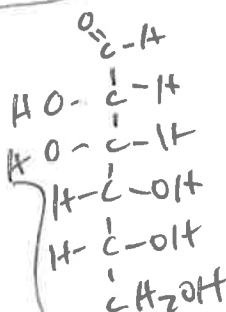 O
C-H
HO-C-H
HO-C-H
H-C-OH
H-C-OH
CH2OH